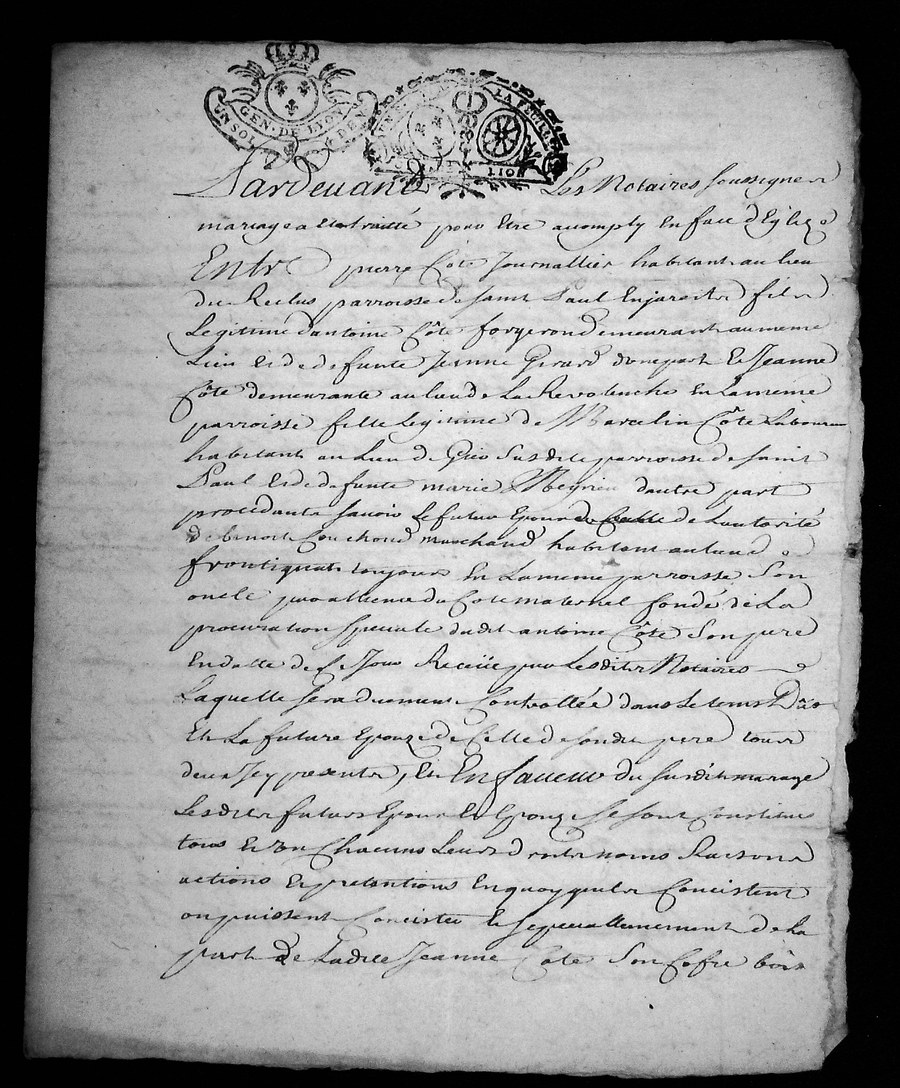 GEN. DE LYON
UN SOL
DEN
LA FEUILLE
LION
Pardevant Les Notaires soussignes
mariage a ete traitté pour être accomply en face d'Eglize
Entre pierre Côte Journallier habitant au lieu
du Reclus parroisse de saint Paul Enjarest fils
Legitime d'antoine Côte forgeron demeurant au meme
Lieu et de defunte Jeanne Girard d'une part et Jeanne
Côte demeurante au lieu de La Revolanche en La meme
parroisse fille Legitime de Marcelin Côte Laboureur
habitant au Lieu de susdite parroisse de saint
Paul et de defunte marie Meynieu d'autre part
procedants savoir Le futur Epoux de Celle de L'autorité
de benoit Couchoud marchand habitant au lieu de
frontignat toujours en La meme parroisse son
oncle par allience du Cote maternel fondé de La
procuration speciale dudit antoine Côte son pere
En datte de Ce Jour Reçüe par Lesdits Notaires
Laquelle sera duement Controllée dans Le tems
Et La future Epouze de Celle de sondit pere tous
deux Icy presents, Et En faveur du susdit mariage
Lesdits futurs Epoux et Epouze se sont Constitués
tous et un Chacuns Leurs droits noms Raisons
actions et pretentions En quoy qu'ils Concistent
ou puissent Concister et sepeciallement de La
part de Ladite Jeanne Cote son Cofre bois